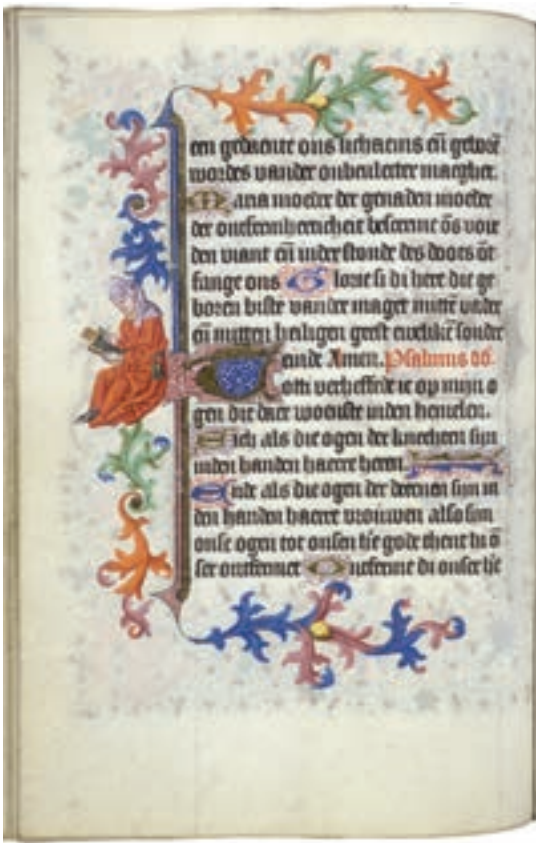 een gedaente ons lichaems en̄ geboē
wordes vander onbevlecter maghet.
Maria moeder der genaden moeder
der ontfermherticheit bescerme ōs voir
den viant en̄ inder stonde des doots ōt
fange ons Glorie si di here die ge
boren biste vander maget mittē vader
en̄ mitten heiligen geest ewelikē sonder
einde Amen. Psalmus
Totti verheffede ic op mijn o
gen die daer woenste inden hemelen.
Sich als die ogen der knechten sijn
inden handen haerre heren.
Ende als die ogen der deernen sijn in
den handen haerre vrouwen also sijn
onse ogen tot onsen gode thent hi ō
ser ontfermet Ontferme di onser